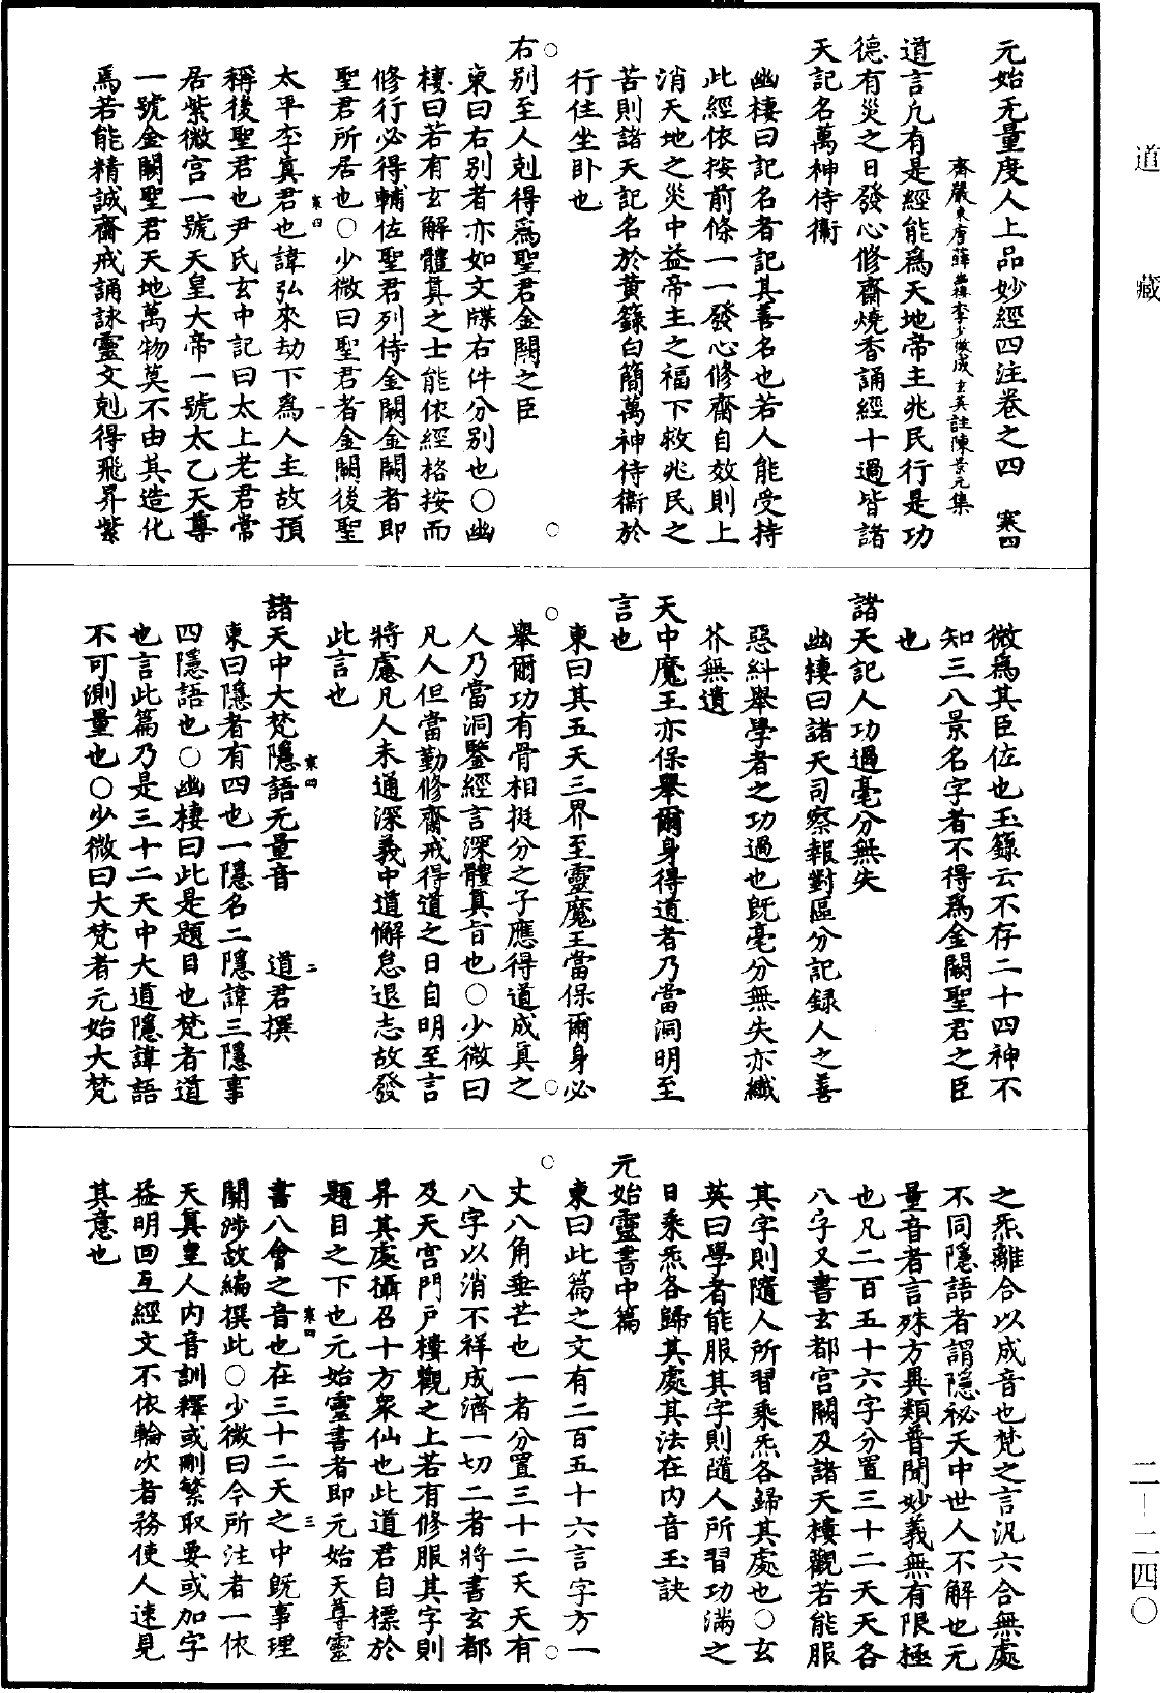 道藏
元始无量度人上品妙經四注卷之四　寒四
齊嚴東唐薛幽棲李少微成玄英註陳景元集
道言凡有是經能爲天地帝主兆民行是功
德有災之日發心修齋燒香誦經十過皆諸
天記名萬神侍衞
幽棲曰記名者記其善名也若人能受持
此經依按前條一一發心修齋自效則上
消天地之災中益帝主之福下救兆民之
苦則諸天記名於黃籙白簡萬神侍衞於
行住坐卧也
右别至人剋得爲聖君金闕之臣
東曰右别者亦如文牒右件分别也○幽
棲曰若有玄解體真之士能依經格按而
修行必得輔佐聖君列侍金闕金闕者即
聖君所居也○少微曰聖君者金闕後聖
寒四　一
太平李真君也諱弘來劫下爲人主故預
稱後聖君也尹氏玄中記曰太上老君常
居紫微宮一號天皇大帝一號太乙天尊
一號金闕聖君天地萬物莫不由其造化
焉若能精誠齋戒誦詠靈文剋得飛昇紫
微爲其臣佐也玉籙云不存二十四神不
知三八景名字者不得爲金闕聖君之臣
也
諸天記人功過毫分無失
幽棲曰諸天司察報對區分記録人之善
惡糾舉學者之功過也既毫分無失亦纖
芥無遺
天中魔王亦保舉爾身得道者乃當洞明至
言也
東曰其五天三界至靈魔王當保爾身必
舉爾功有骨相挺分之子應得道成真之
人乃當洞鑒經言深體真旨也○少微曰
凡人但當勤修齋戒得道之日自明至言
將慮凡人未通深義中道懈怠退志故發
此言也
寒四　二
諸天中大梵隱語无量音　道君撰
東曰隱者有四也一隱名二隱諱三隱事
四隱語也○幽棲曰此是題目也梵者道
也言此篇乃是三十二天中大道隱諱語
不可測量也○少微曰大梵者元始大梵
之炁離合以成音也梵之言汎六合無處
不同隱語者謂隱祕天中世人不解也元
量音者言殊方異類普聞妙義無有限極
也凡二百五十六字分置三十二天天各
八字又書玄都宮闕及諸天樓觀若能服
其字則隨人所習乘炁各歸其處也○玄
英曰學者能服其字則隨人所習功滿之
日乘炁各歸其處其法在内音玉訣
元始靈書中篇
東曰此篇之文有二百五十六言字方一
丈八角垂芒也一者分置三十二天天有
八字以消不祥成濟一切二者將書玄都
及天宮門戶樓觀之上若有修服其字則
昇其處攝召十方衆仙也此道君自標於
題目之下也元始靈書者即元始天尊靈
寒四　三
書八會之音也在三十二天之中既事理
關涉故編撰此○少微曰今所注者一依
天真皇人内音訓釋或刪繁取要或加字
益明回互經文不依輪次者務使人速見
其意也
二－二四○